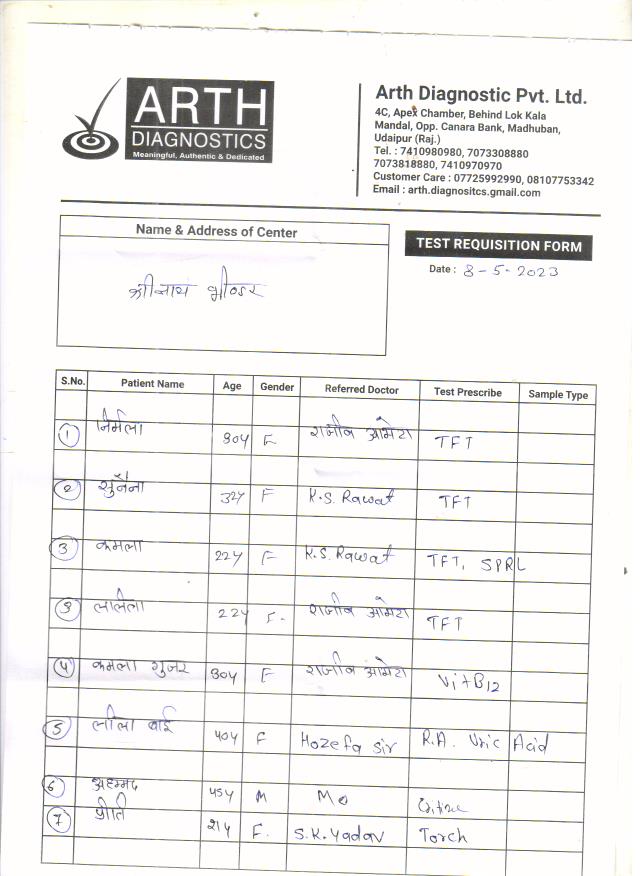 ARTH
DIAGNOSTICS
Meaningful, Authentic & Dedicated
Arth Diagnostic Pvt. Ltd.
4C, Apex Chamber, Behind Lok Kala
Mandal, Opp. Canara Bank, Madhuban,
Udaipur (Raj.)
Tel. : 7410980980, 7073308880
7073818880, 7410970970
Customer Care : 07725992990, 08107753342
Email : arth.diagnositcs.gmail.com
Name & Address of Center
श्रीनाथ भीण्डर
TEST REQUISITION FORM
Date : 8-5-2023
S.No. Patient Name Age Gender Referred Doctor Test Prescribe Sample Type
1 निर्मला 30Y F राजीव आमेटा TFT
2 सुनैना 32Y F K.S. Rawat TFT
3 कमला 22Y F K.S. Rawat TFT, SPRL
3 ललिता 22Y F. राजीव आमेटा TFT
4 कमला गुजर 30Y F राजीव आमेटा Vit B12
5 लीला बाई 40Y F Hozefa Sir R.A. Uric Acid
6 45Y M
7 प्रीति 21Y F. S.K. Yadav Torch